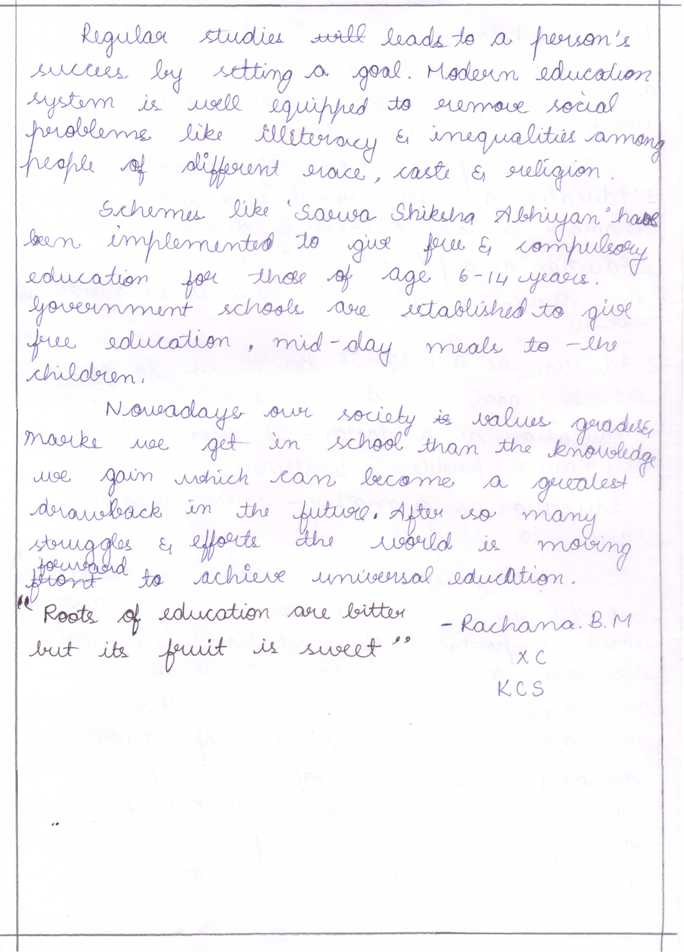 Regular studies will leads to a person's
success by setting a goal. Modern education
system is well equipped to remove social
problems like illiteracy & inequalities among
people of different race, caste & religion.
Schemes like 'Sarwa Shiksha Abhiyan' has
been implemented to give free & compulsory
education for those of age 6-14 years.
Government schools are established to give
free education, mid-day meals to the
children.
Nowadays our society is values grades &
marks we get in school than the knowledge
we gain which can become a greatest
drawback in the future. After so many
struggles & efforts the world is moving
forward
front to achieve universal education.
"Roots of education are bitter
but its fruit is sweet"
- Rachana. B. M
X C
KCS